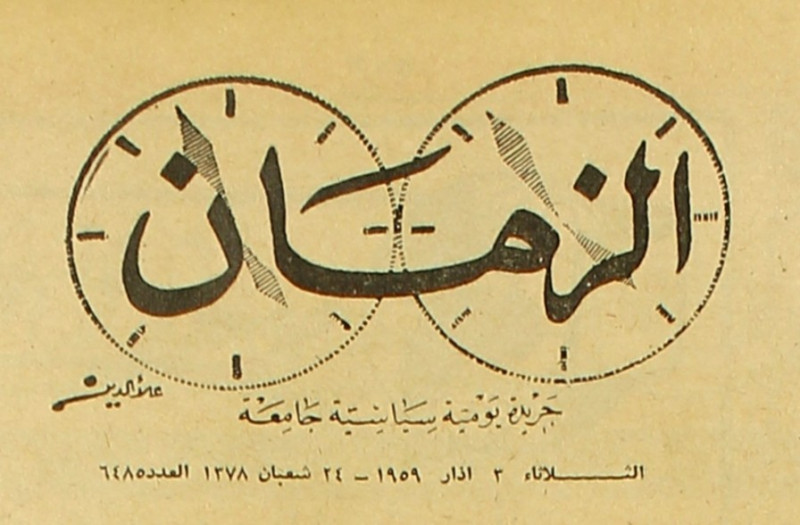 الزمان
علاءالدين
جَريدة يَوْميَة سِيَاسِيَّة جَامِعَة
الثـــــلاثاء ٣ اذار ١٩٥٩ – ٢٤ شعبان ١٣٧٨ العدد٦٤٨٥